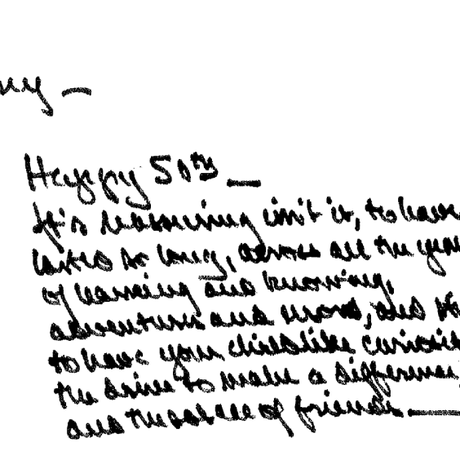 Happy 50th —
It's reassuring isn't it, to have
lasted so long, across all the year
of learning and knowing,
adventures and more, and
to have your childlike curiosi
the drive to make a differenc
and the of friends —